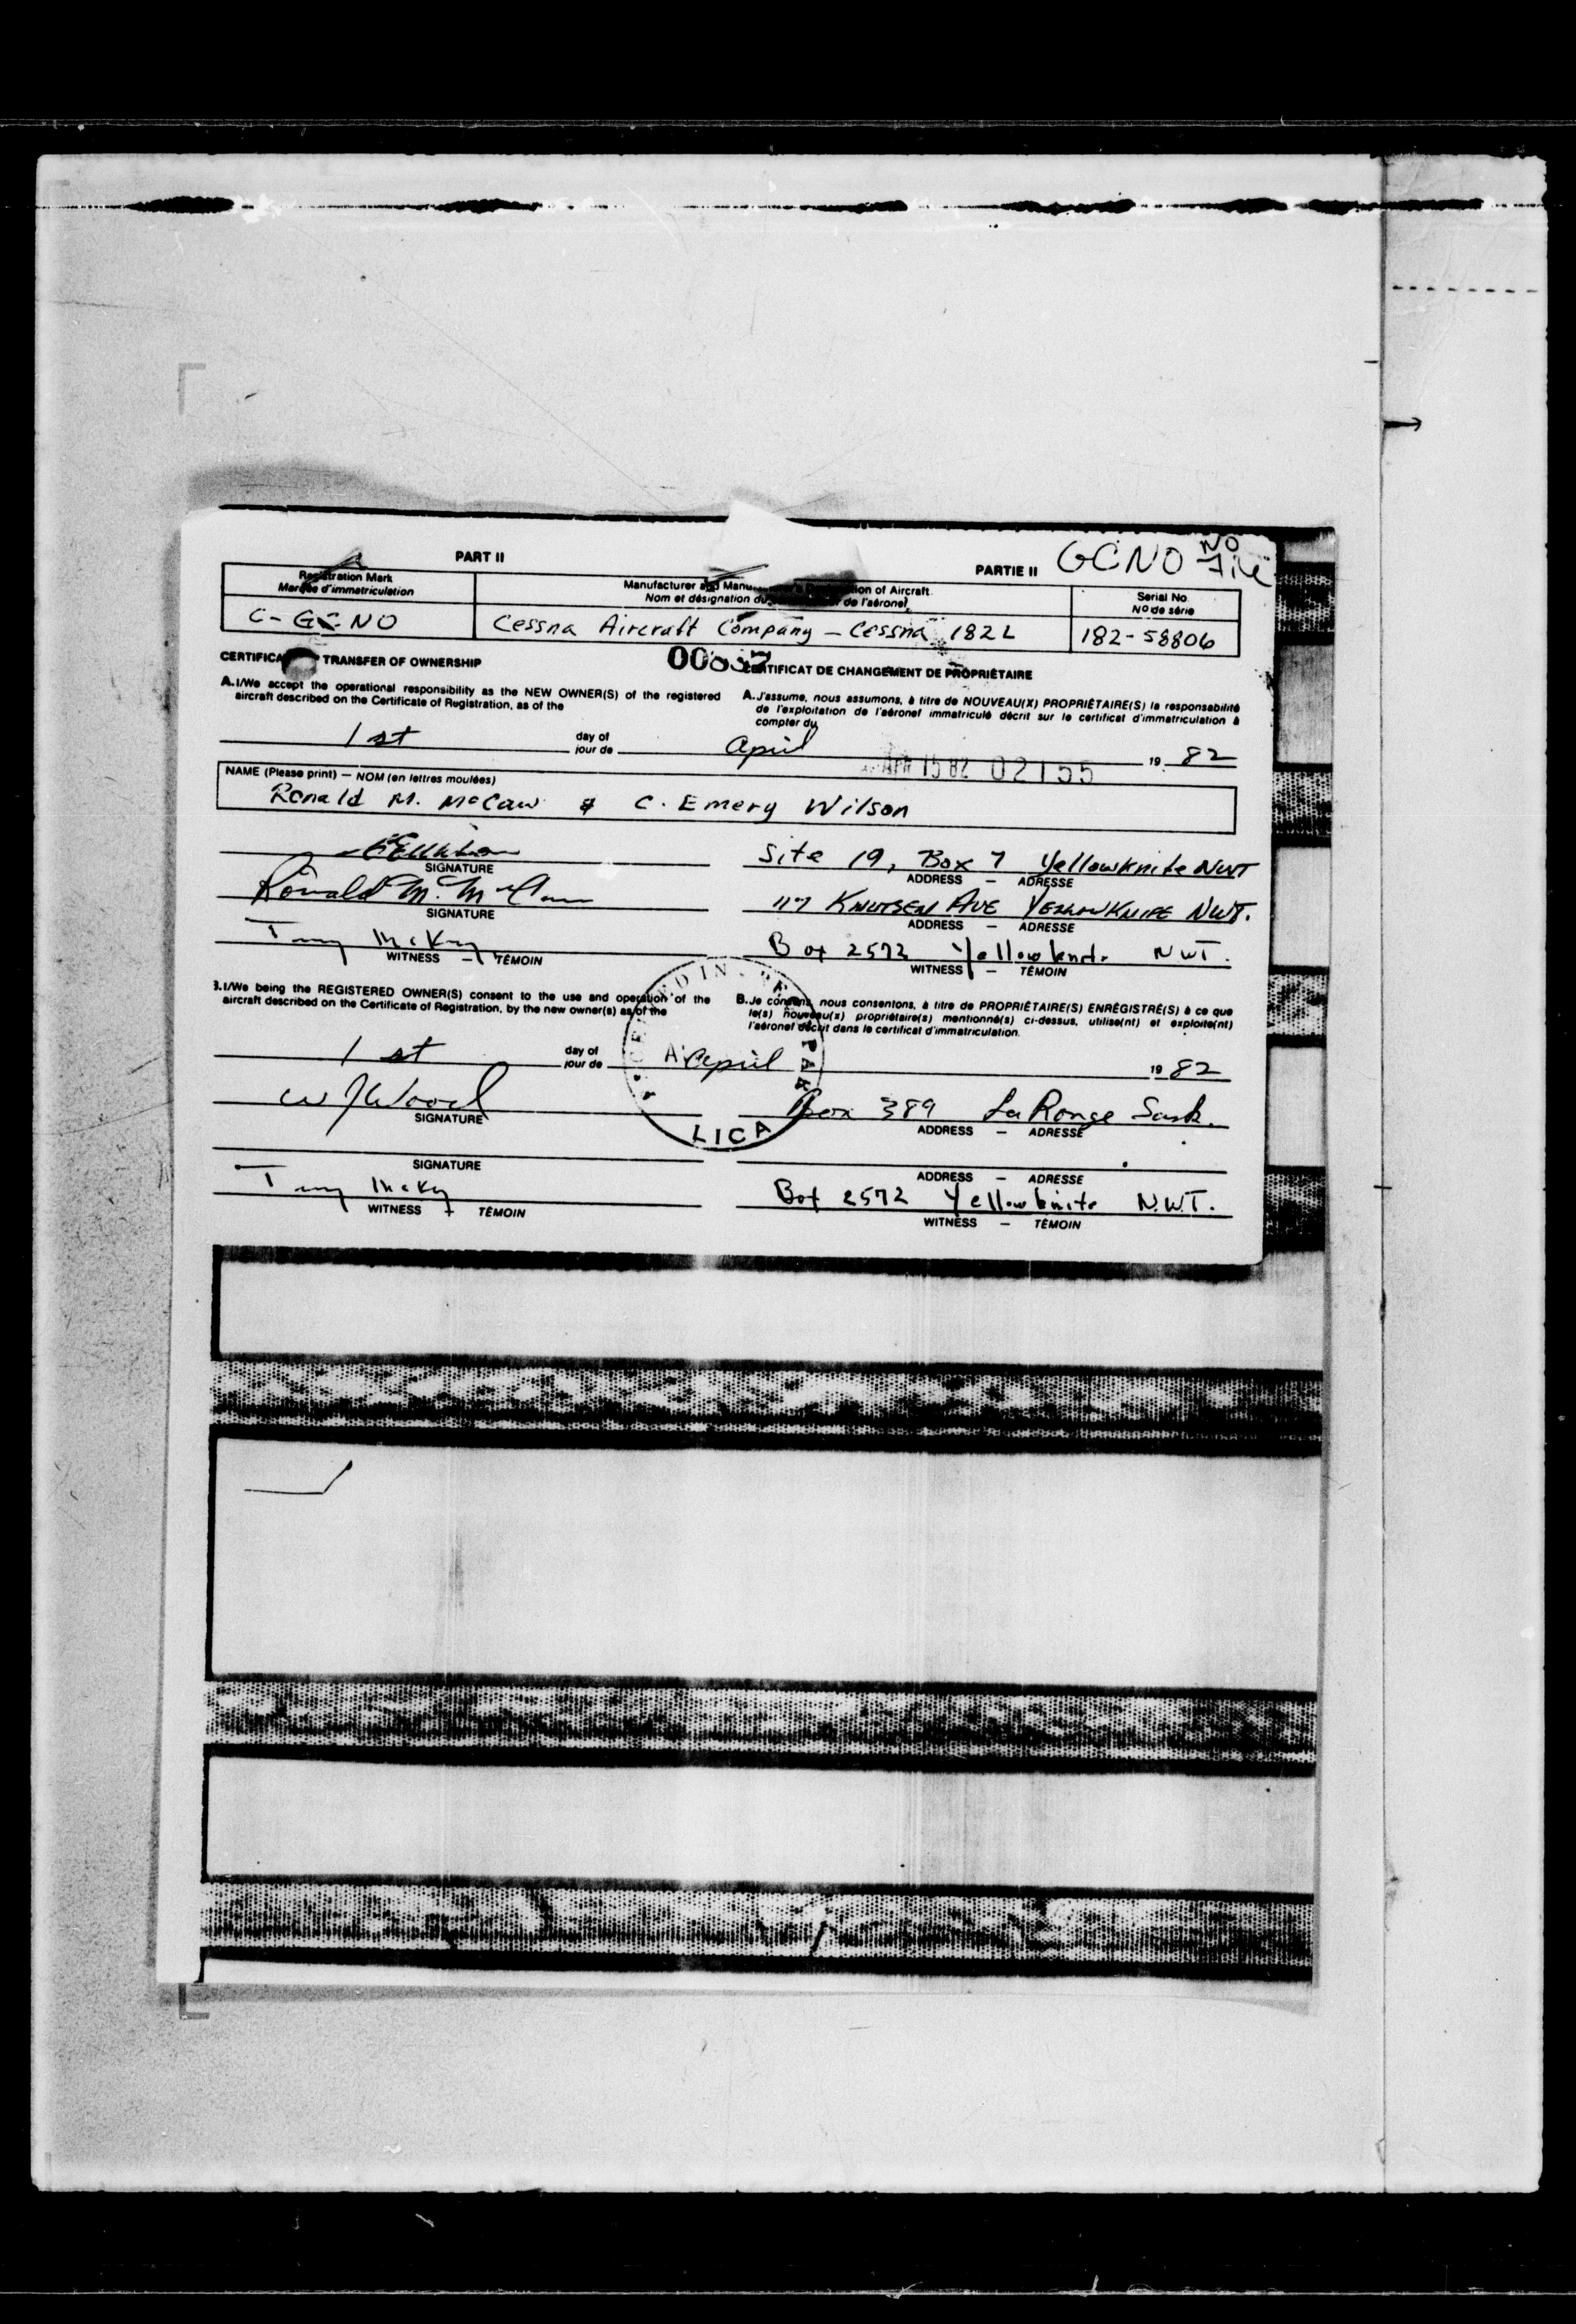 GCNO NO File
PART II
PARTIE II
Registration Mark
Marque d'immatriculation
Manufacturer and ion of Aircraft
Nom et désignation du de l'aéronef
Serial No
Nº de série
C-GCNO
Cessna Aircraft Company - Cessna 182L
182-58806
TRANSFER OF OWNERSHIP
DE CHANGEMENT DE PROPRIÉTAIRE
A. I/We accept the operational responsibility as the NEW OWNER(S) of the registered
aircraft described on the Certificate of Registration, as of the
A. J'assume, nous assumons, à titre de NOUVEAU(X) PROPRIÉTAIRE(S) la responsabilité
de l'exploitation de l'aéronef immatriculé décrit sur le certificat d'immatriculation à
compter du
1st day of April 19 82
jour de
APR 15 82 02155
NAME (Please print) — NOM (en lettres moulées)
Ronald M. McCaw & C. Emery Wilson
Site 19, Box 7 Yellowknife NWT
SIGNATURE
ADDRESS — ADRESSE
Ronald M. McCaw
117 KNUTSEN AVE YELLOWKNIFE NWT.
SIGNATURE
ADDRESS — ADRESSE
Box 2572 Yellowknife NWT.
WITNESS — TÉMOIN
WITNESS — TÉMOIN
B. I/We being the REGISTERED OWNER(S) consent to the use and operation of the
aircraft described on the Certificate of Registration, by the new owner(s) as of the
B. Je consens, nous consentons, à titre de PROPRIÉTAIRE(S) ENRÉGISTRÉ(S) à ce que
le(s) nouveau(x) propriétaire(s) mentionné(s) ci-dessus, utilise(nt) et exploite(nt)
l'aéronef décrit dans le certificat d'immatriculation.
1st day of April 19 82
jour de
W J Wood
Box 389 La Ronge Sask.
SIGNATURE
ADDRESS — ADRESSE
LICA
SIGNATURE
ADDRESS — ADRESSE
Box 2572 Yellowknife N.W.T.
WITNESS TÉMOIN
WITNESS — TÉMOIN